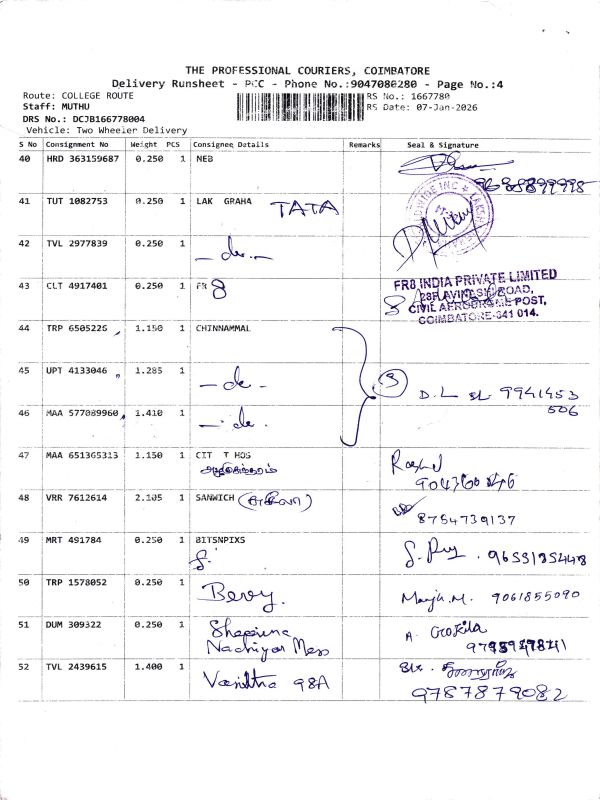 THE PROFESSIONAL COURIERS, COIMBATORE
Delivery Runsheet - PCC - Phone No.:9047080280 - Page No.:4
Route: COLLEGE ROUTE
Staff: MUTHU
DRS No.: DCJB166778004
Vehicle: Two Wheeler Delivery
RS No.: 1667780
RS Date: 07-Jan-2026
S No Consignment No Weight PCS Consignee Details Remarks Seal & Signature
40 HRD 363159687 0.250 1 NEB
41 TUT 1082753 0.250 1 LAK GRAHA TATA
42 TVL 2977839 0.250 1 - do. -
43 CLT 4917401 0.250 1 FR 8
FR8 INDIA PRIVATE LIMITED
CIVIL AERODROME POST,
COIMBATORE-641 014.
44 TRP 6505226 1.150 1 CHINNAMMAL
45 UPT 4133046 1.285 1 - do - 3 D. L 9941453
506
46 MAA 577089960 1.410 1 - do -
47 MAA 651365313 1.150 1 CIT T HOS
48 VRR 7612614 2.105 1 SANWICH 8754739137
49 MRT 491784 0.250 1 BITSNPIXS
50 TRP 1578052 0.250 1 9061855090
51 DUM 309322 0.250 1 Nachiyar Mess A. Gokila
52 TVL 2439615 1.400 1 Vanitha 98A
9787879082